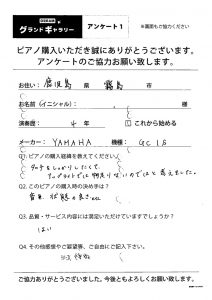 グランドギャラリー アンケート1 ※裏面もご協力ください
ピアノ購入いただき誠にありがとうございます。
アンケートのご協力お願い致します。
お住い: 鹿児島 県 霧島 市
お名前(イニシャル): 様
演奏歴: 4 年 □これから始める
メーカー: YAMAHA 機種: GC1S
Q1. ピアノの購入経緯を教えてください。
タッチをしっかりしたくて、
アップライトでは物足りないのではと考えました。
Q2. このピアノの購入時の決め手は?
音量、状態の良さetc
Q3. 品質・サービス内容には満足いただけていますでしょうか?
はい
Q4. その他感想やご要望等、ご自由にご記入下さい。
ご協力ありがとうございました。今後ともよろしくお願い致します。